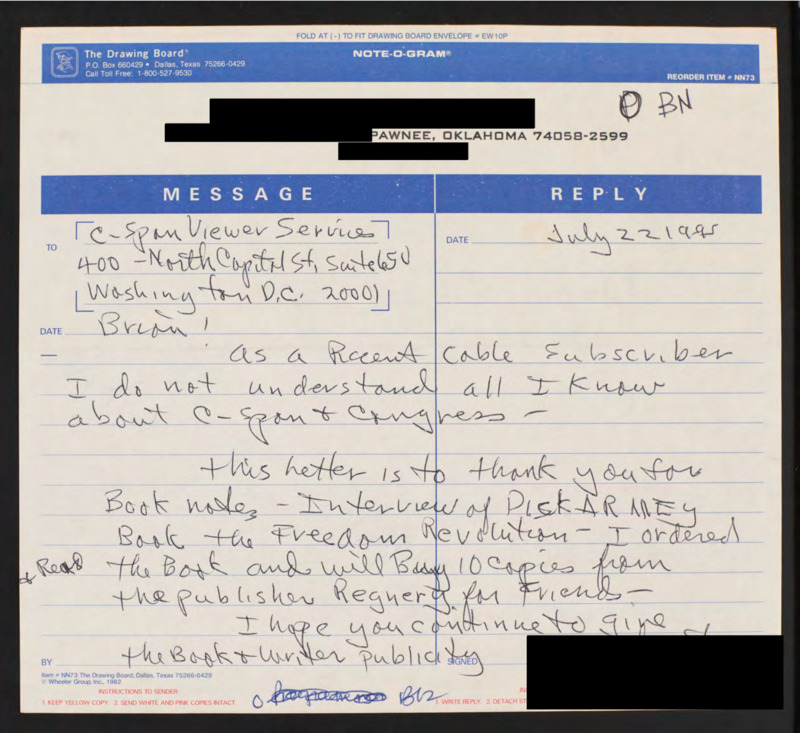 FOLD AT (–) TO FIT DRAWING BOARD ENVELOPE # EW10P
The Drawing Board®
P.O. Box 660429 • Dallas, Texas 75266-0429
Call Toll Free: 1-800-527-9530
NOTE-O-GRAM®
REORDER ITEM # NN73
BN
PAWNEE, OKLAHOMA 74058-2599
MESSAGE
REPLY
TO
C-Span Viewer Service
400 - North Capitol St, Suite 650
Washington D.C. 20001
DATE July 22 1995
DATE
Brian!
as a Recent Cable Subscriber
I do not understand all I Know
about C-Span & Congress -
this letter is to thank you for
Book notes - Interview of DISK ARMEY
Book the Freedom Revolution - I ordered
& Read the Book and will Buy 10 Copies from
the publisher Regnery for Friends -
I hope you continue to give
the Book & Writer publicity
BY
SIGNED
Item # NN73 The Drawing Board, Dallas, Texas 75266-0429
© Wheeler Group, Inc., 1982
INSTRUCTIONS TO SENDER
1. KEEP YELLOW COPY. 2. SEND WHITE AND PINK COPIES INTACT.
1. WRITE REPLY 2. DETACH ST